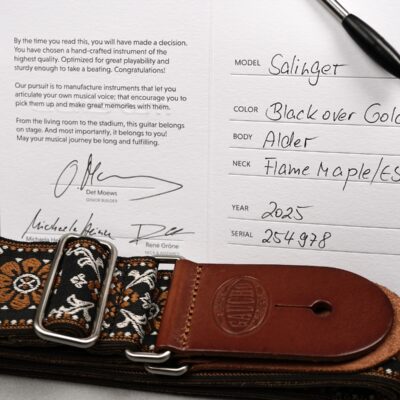 By the time you read this, you will have made a decision.
You have chosen a hand-crafted instrument of the
highest quality. Optimized for great playability and
sturdy enough to take a beating. Congratulations!
Our pursuit is to manufacture instruments that let you
articulate your own musical voice; that encourage you to
pick them up and make great memories with them.
From the living room to the stadium, this guitar belongs
on stage. And most importantly, it belongs to you!
May your musical journey be long and fulfilling.
Det Moews
Michaela
Rene Gröne
MODEL Salinger
COLOR Black over Gold
BODY Alder
NECK Flame Maple/ES
YEAR 2025
SERIAL 254978
GAUCHO